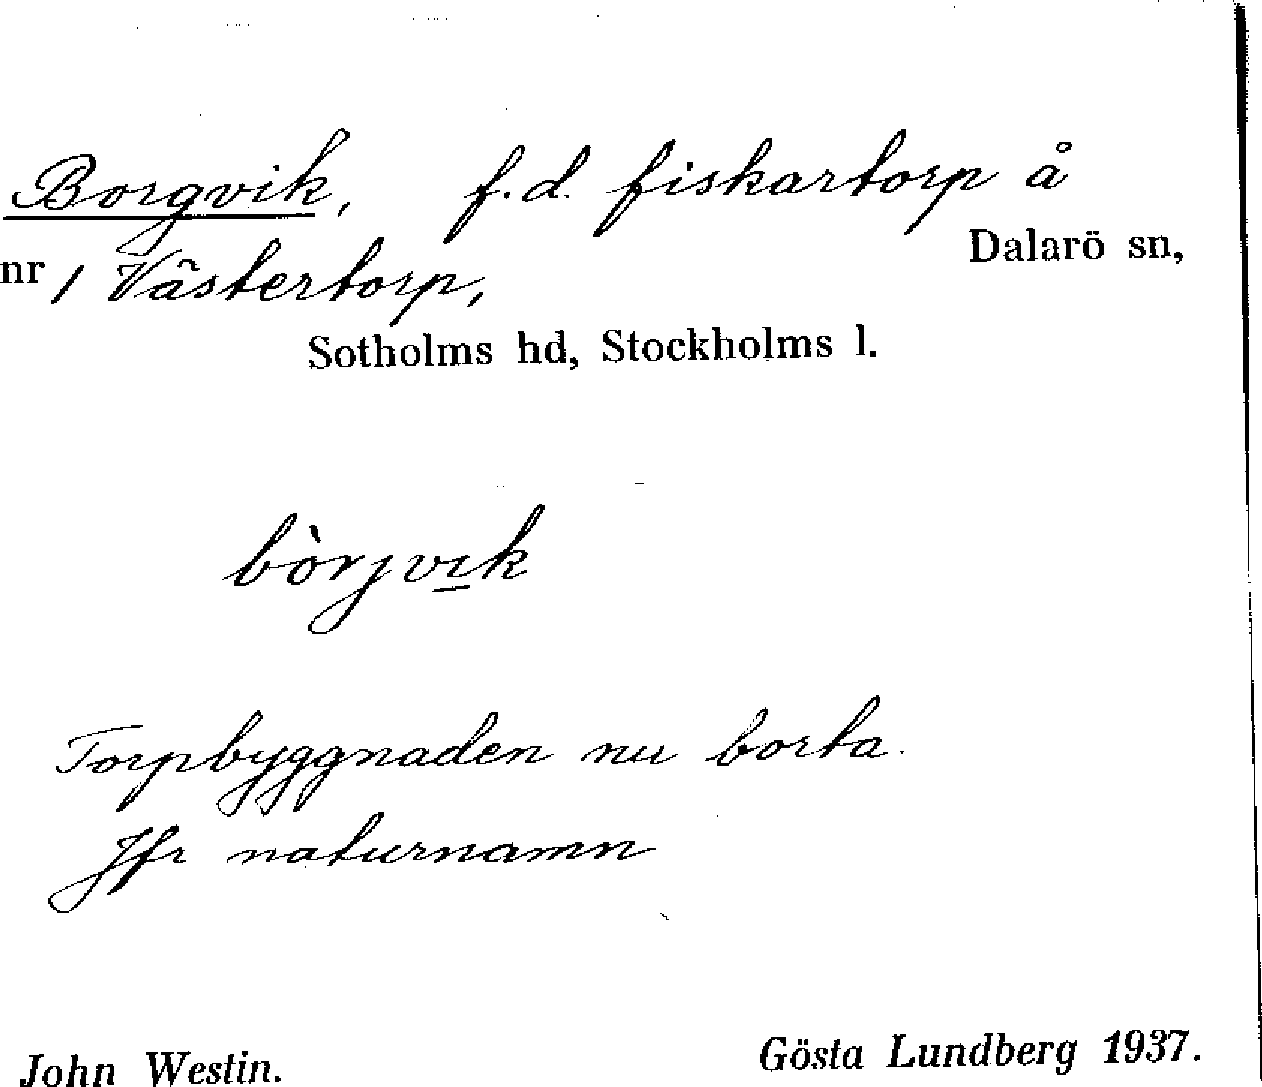 Borgvik, f.d. fiskartorp å
nr 1 Västertorp, Dalarö sn,
Sotholms hd, Stockholms l.
bòrjvik
Torpbyggnaden nu borta.
Jfr naturnamn
John Westin. Gösta Lundberg 1937.